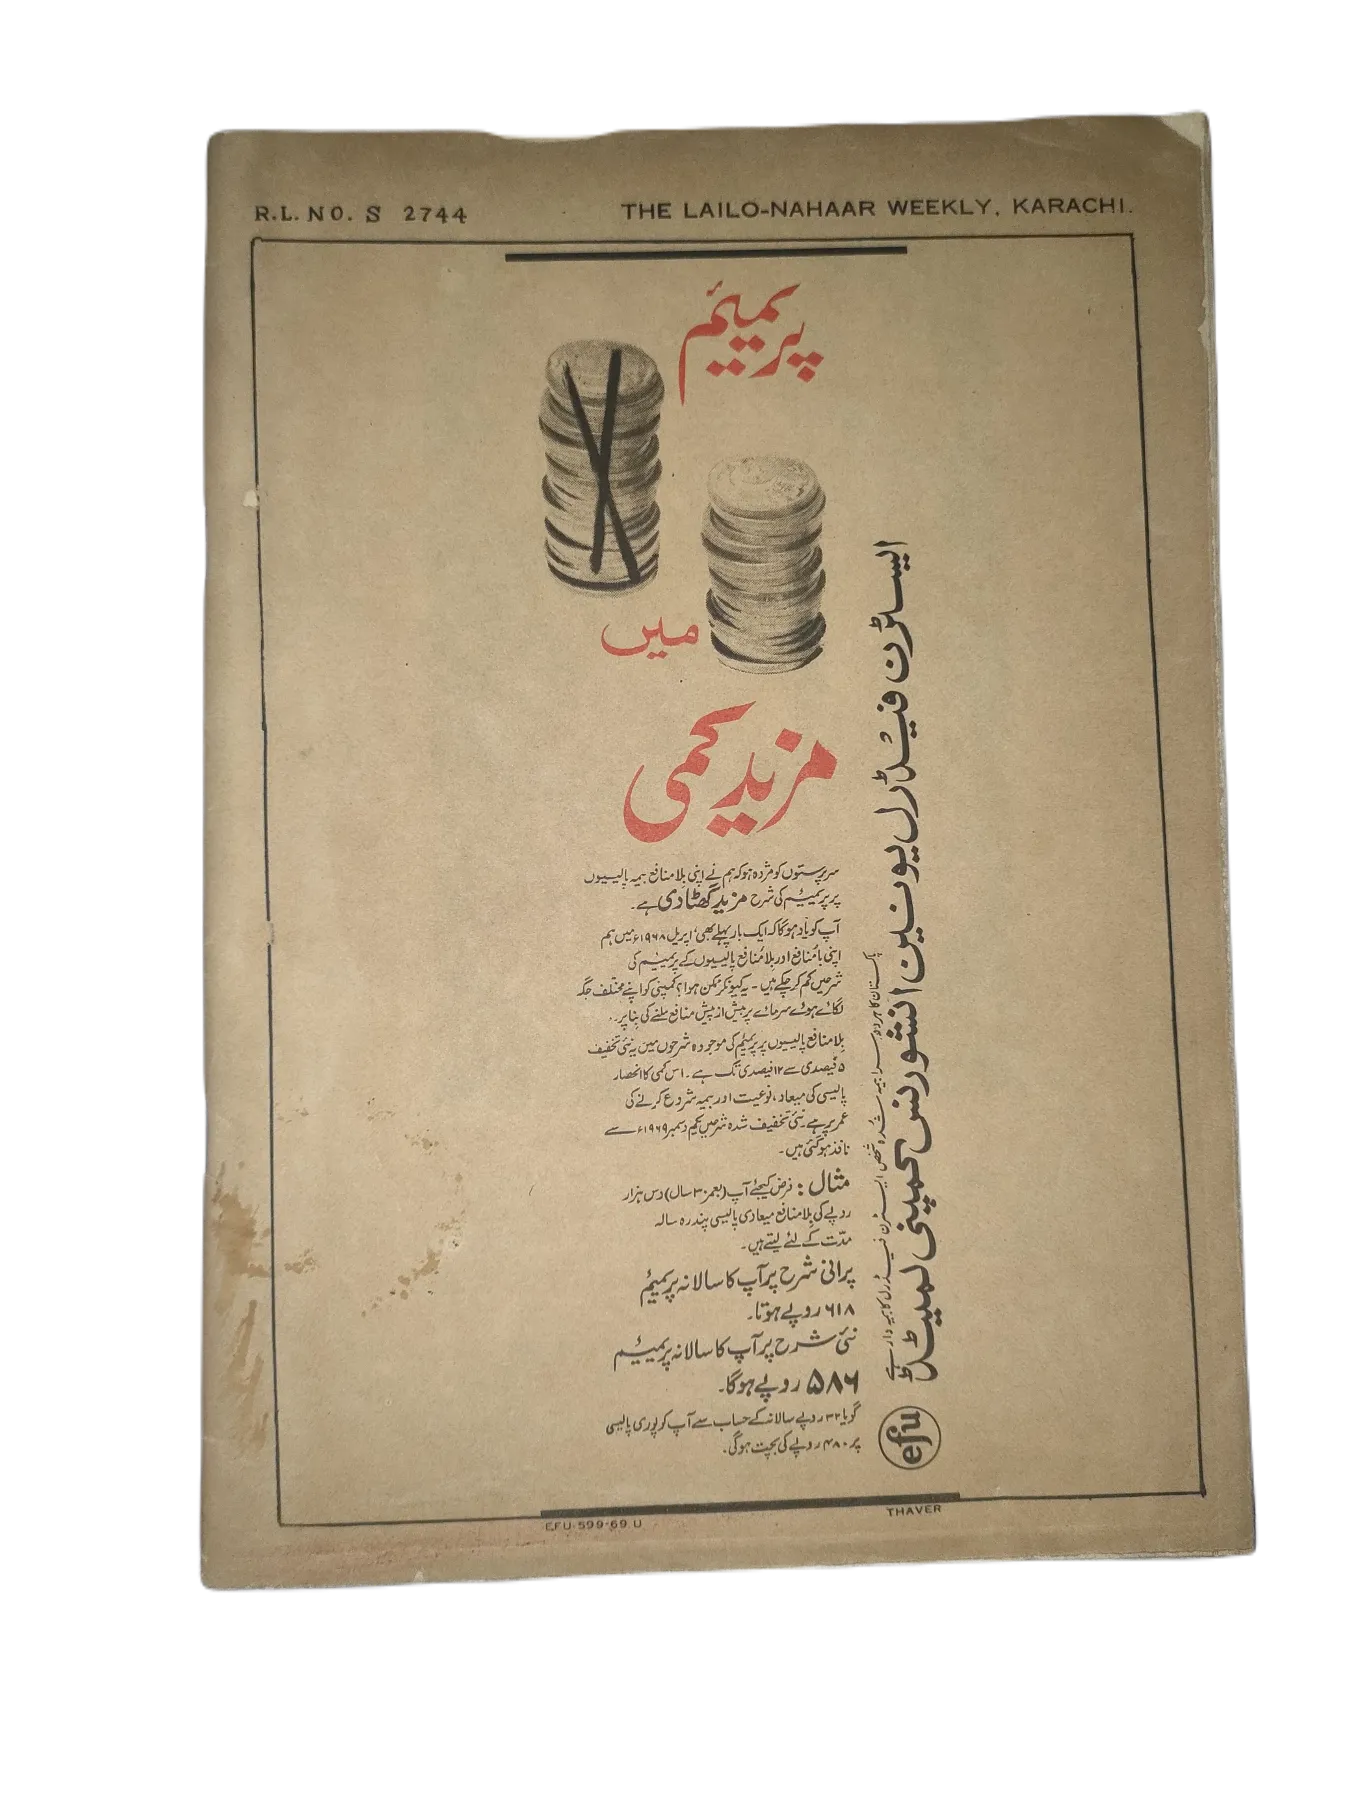 R.L. NO. S 2744
THE LAILO-NAHAAR WEEKLY, KARACHI.
پریمیئم
میں
مزید کمی
سرپرستوں کو مژدہ ہو کہ ہم نے اپنی بلا منافع بیمہ پالیسیوں
پر پریمیئم کی شرح مزید گھٹا دی ہے۔
آپ کو یاد ہوگا کہ ایک بار پہلے بھی، اپریل ۱۹۶۸ء میں ہم
اپنی بامنافع اور بلا منافع پالیسیوں کے پریمیئم کی
شرحیں کم کر چکے ہیں۔ یہ کیونکر ممکن ہوا؟ کمپنی کو اپنے مختلف جگہ
لگائے ہوئے سرمائے پر بیش از بیش منافع ملنے کی بنا پر۔۔
بلا منافع پالیسیوں پر پریمیئم کی موجودہ شرحوں میں یہ نئی تخفیف
۵ فیصدی سے ۱۲ فیصدی تک ہے۔ اس کمی کا انحصار
پالیسی کی میعاد، نوعیت اور بیمہ شروع کرنے کی
عمر پر ہے۔ نئی تخفیف شدہ شرحیں یکم دسمبر ۱۹۶۹ء سے
نافذ ہو گئی ہیں۔
مثال : فرض کیجئے آپ (بعمر ۳۰ سال) دس ہزار
روپے کی بلا منافع میعادی پالیسی پندرہ سالہ
مدّت کے لئے لیتے ہیں۔
پرانی شرح پر آپ کا سالانہ پریمیئم
۶۱۸ روپے ہوتا۔
نئی شرح پر آپ کا سالانہ پریمیئم
۵۸۶ روپے ہوگا۔
گویا ۳۲ روپے سالانہ کے حساب سے آپ کو پوری پالیسی
پر ۴۸۰ روپے کی بچت ہوگی۔
ایسٹرن فیڈرل یونین انشورنس کمپنی لمیٹڈ
پاکستان کا ہر دوسرا بیمہ شدہ شخص ایسٹرن فیڈرل کا بیمہ دار ہے
efu
EFU-599-69 U
THAVER